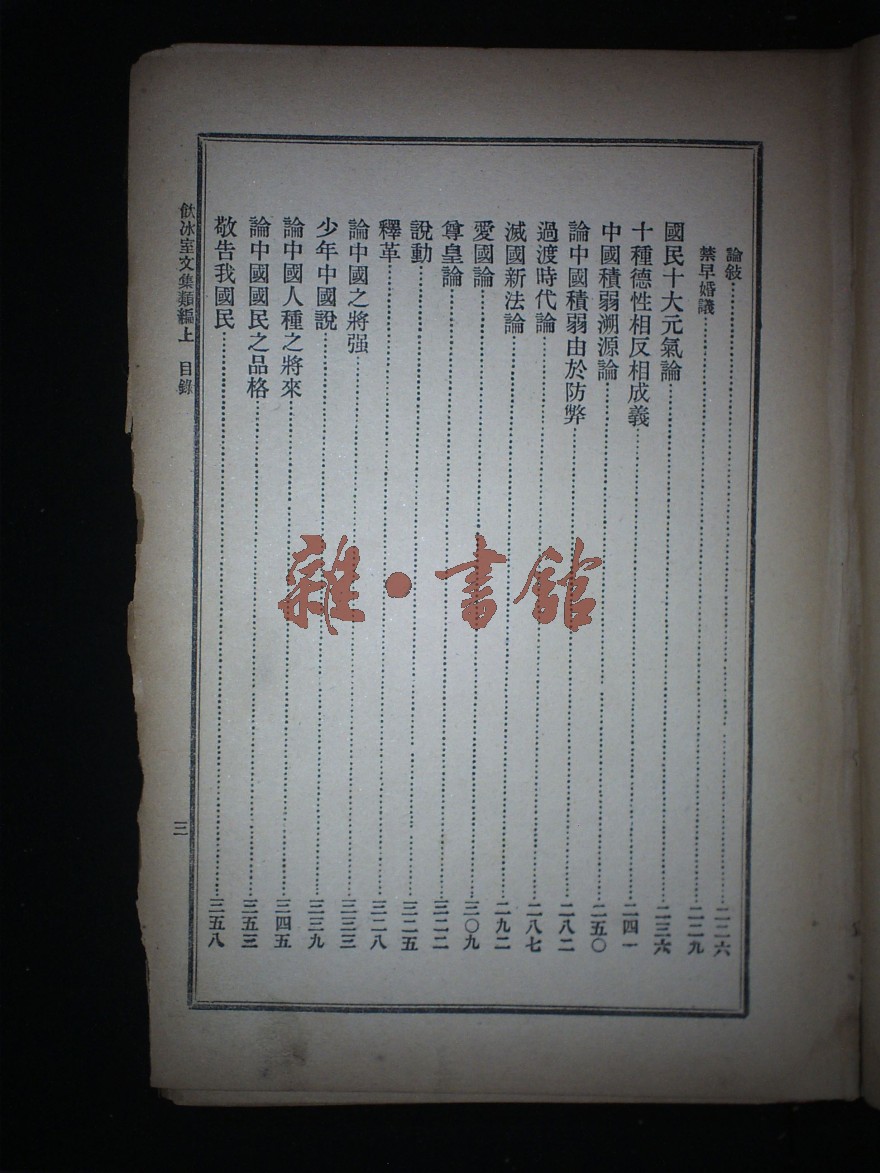 論敍……二二六
禁早婚議……二二九
國民十大元氣論……二三六
十種德性相反相成義……二四一
中國積弱溯源論……二五〇
論中國積弱由於防弊……二八二
過渡時代論……二八七
滅國新法論……二九二
愛國論……三〇九
尊皇論……三二二
說動……三二五
釋革……三二八
論中國之將强……三三三
少年中國說……三三九
論中國人種之將來……三四五
論中國國民之品格……三五三
敬告我國民……三五八
飮冰室文集類編上 目錄 三
雜·書館